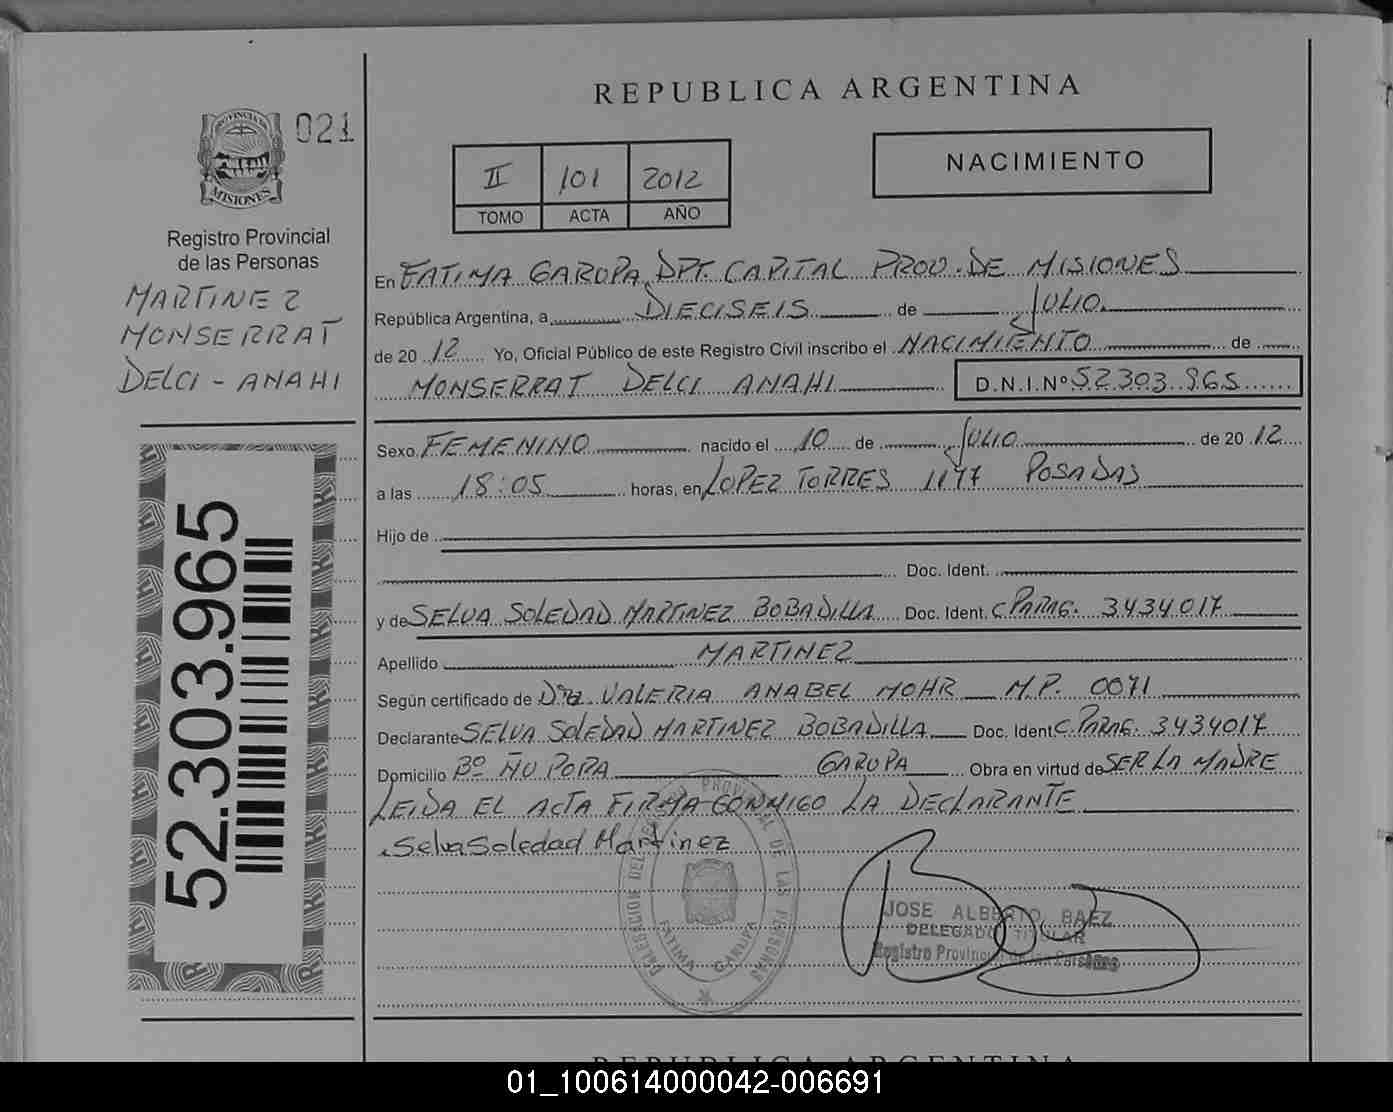 REPUBLICA ARGENTINA
PROVINCIA DE
MISIONES
021
Registro Provincial
de las Personas
MARTINEZ
MONSERRAT
DELCI - ANAHI
52.303.965
II 101 2012
TOMO ACTA AÑO
NACIMIENTO
En FATIMA GARUPA, DPT. CAPITAL PROV. DE MISIONES
República Argentina, a DIECISEIS de JULIO
de 20 12 Yo, Oficial Público de este Registro Civil inscribo el NACIMIENTO de
MONSERRAT DELCI ANAHI D.N.I.Nº 52.303.965
Sexo FEMENINO nacido el 10 de JULIO de 20 12
a las 18:05 horas, en LOPEZ TORRES 1177 POSADAS
Hijo de
Doc. Ident.
y de SELVA SOLEDAD MARTINEZ BOBADILLA Doc. Ident. C. PARAG. 3434017
Apellido MARTINEZ
Según certificado de Dra VALERIA ANABEL MOHR M.P. 0071
Declarante SELVA SOLEDAD MARTINEZ BOBADILLA Doc. Ident C. PARAG. 3434017
Domicilio Bº ÑU PORA GARUPA Obra en virtud de SER LA MADRE
LEIDA EL ACTA FIRMA CONMIGO LA DECLARANTE
Selva Soledad Martinez
DELEGACION DEL REGISTRO PROVINCIAL DE LAS PERSONAS
FATIMA GARUPA
JOSE ALBERTO BAEZ
DELEGADO TITULAR
Registro Provincial de las Personas
REPUBLICA ARGENTINA
01_100614000042-006691